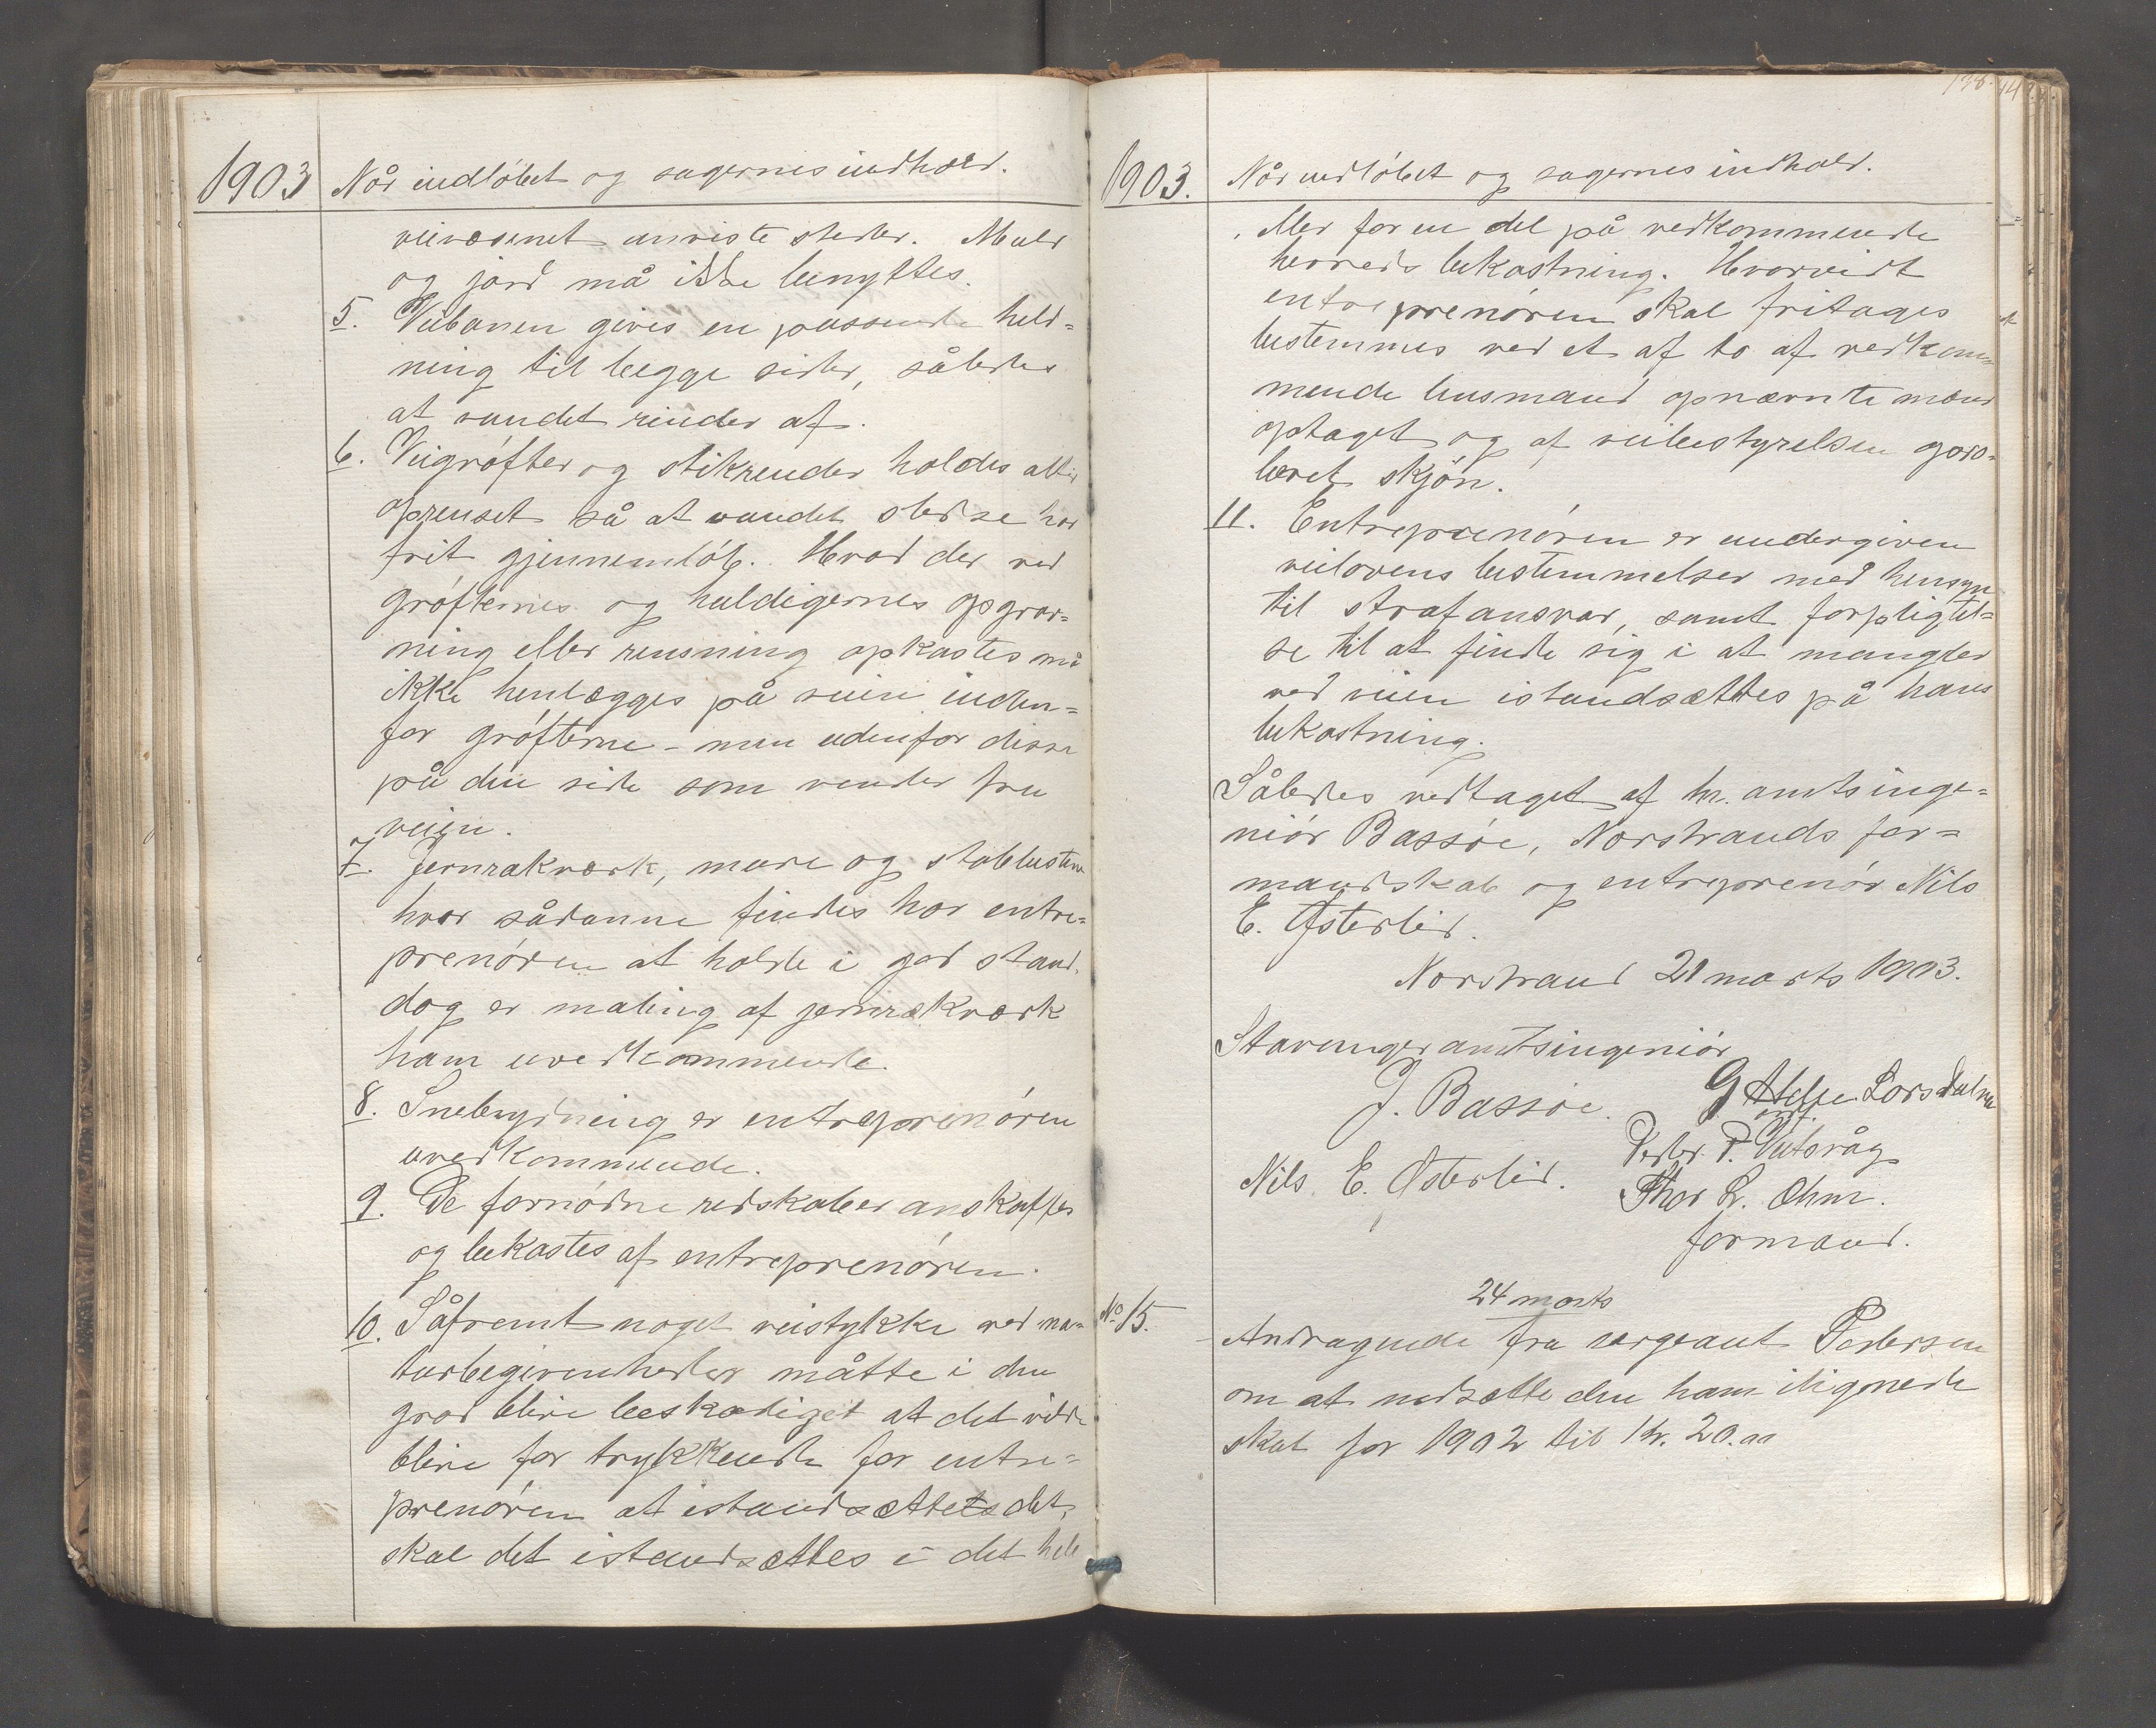 1903 Når indløbet og sagernes indhold.
veivæsenet anviste steder. Muld
og jord må ikke benyttes.
5. Veibanen gives en passende held=
ning til begge sider, således
at vandet rinder af.
6. Veigrøfter og stikrender holdes altid
oprenset så at vandet stedse har
frit gjennemløb. Hvad der ved
grøfternes og huldigernes opgrav=
ning eller rensning opkastes må
ikke henlægges på veien inden=
for grøfterne - men udenfor disse
på den side som vender fra
veien.
7. Jernrækværk, mure og stabbestene
hvor sådanne findes har entre=
prenøren at holde i god stand,
dog er maling af jernrækværk
ham uvedkommende.
8. Snebrydning er entreprenøren
uvedkommende.
9. De fornødne redskaber anskaffes
og bekostes af entreprenøren.
10. Såfremt noget veistykke ved na=
turbegivenheder måtte i den
grad blive beskadiget at det vilde
blive for trykkende for entre=
prenøren at istandsættets det,
skal det istandsættes i det hele
138. 14
1903. Når indløbet og sagernes indhold.
eller for en del på vedkommende
herreds bekostning. Hvorvidt
entreprenøren skal fritages
bestemmes ved et af to af vedkom=
mende lensmand opnævnte mænd
optaget og af veibestyrelsen god=
kjent skjøn.
11. Entreprenøren er undergiven
veilovens bestemmelser med hensyn
til strafansvar, samt forpligtel=
se til at finde sig i at mangler
ved veien istandsættes på hans
bekostning.
Således vedtaget af hr. amtsinge=
niør Bassøe, Norstrands for=
mandskab og entreprenør Nils
E. Østerlid.
Norstrand 21 marts 1903.
Stavanger amtsingeniør
J. Bassøe. G Helle. Lars
Peder P. Vutsvåg
Nils E. Østerlid. Thor L. Ohm.
formand.
24 marts
No 15. Andragende fra sergeant Pedersen
om at nedsætte den ham ilignede
skat for 1902 til Kr. 20.00